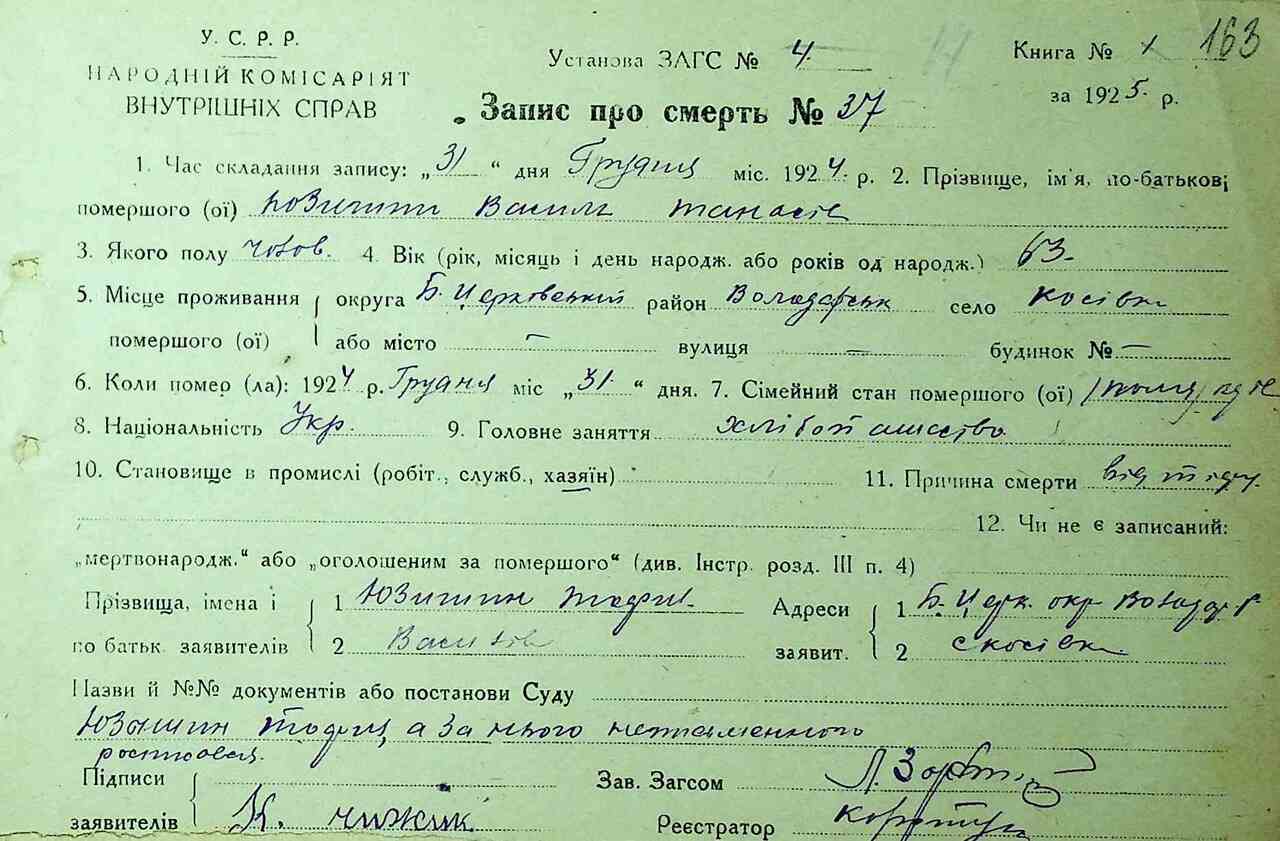 163
У. С. Р. Р.
НАРОДНІЙ КОМІСАРІЯТ
ВНУТРІШНІХ СПРАВ
Установа ЗАГС № 4
Книга №
за 1925 р.
Запис про смерть № 37
1. Час складання запису: „31“ дня Грудня міс. 1924 р. 2. Прізвище, ім'я, по-батькові
помершого (ої) Василь
3. Якого полу чолов. 4. Вік (рік, місяць і день народж. або років од народж.) 63
5. Місце проживання округа Б. Церковській район Володарськ село Косівка
помершого (ої) або місто — вулиця — будинок № —
6. Коли помер (ла): 1924 р. Грудня міс „31“ дня. 7. Сімейний стан помершого (ої)
8. Національність Укр. 9. Головне заняття
10. Становище в промислі (робіт., служб., хазяїн) 11. Причина смерти від
12. Чи не є записаний:
„мертвонародж.“ або „оголошеним за помершого“ (див. Інстр. розд. III п. 4)
Прізвища, імена і 1 Адреси 1 Б. Церк. окр
по батьк. заявителів 2 заявит. 2 с Косівка
Назви й №№ документів або постанови Суду
а за нього неписьменного
Підписи Зав. Загсом
заявителів К. Чижик Реєстратор